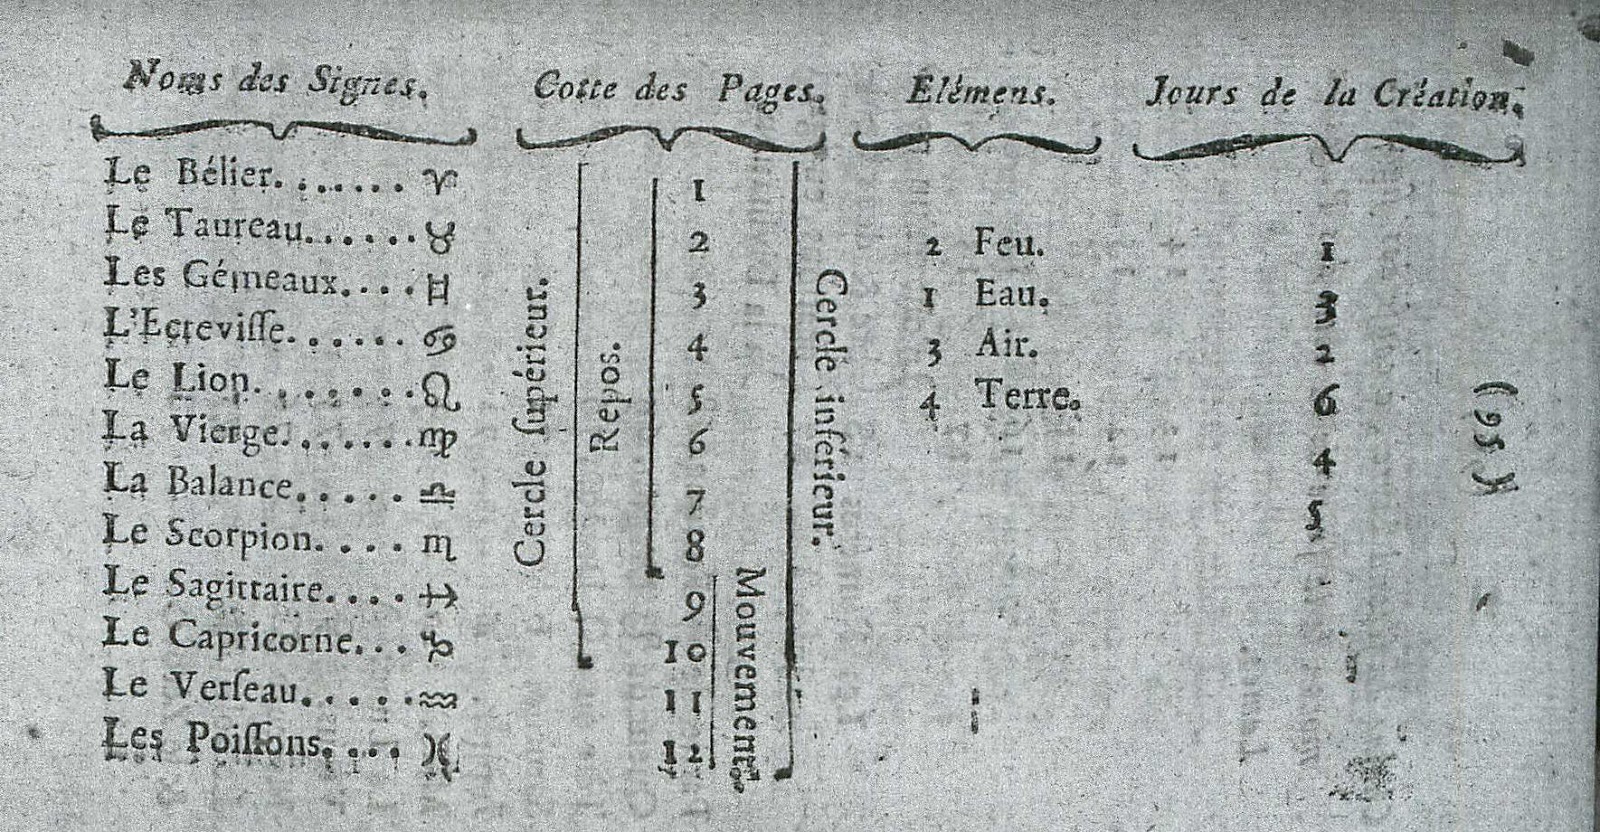 Noms des Signes. Cotte des Pages. Elémens. Jours de la Création.
Le Bélier....... ♈ 1
Le Taureau...... ♉ 2 2 Feu. 1
Les Gémeaux.... ♊ 3 1 Eau. 3
L'Ecreviſſe...... ♋ 4 3 Air. 2
Le Lion........ ♌ 5 4 Terre. 6
La Vierge....... ♍ 6 4
La Balance..... ♎ 7 5
Le Scorpion.... ♏ 8
Le Sagittaire.... ♐ 9
Le Capricorne... ♑ 10
Le Verſeau...... ♒ 11
Les Poiſſons.... ♓ 12
Cercle ſupérieur.
Repos.
Mouvement.
Cercle inférieur.
(95)